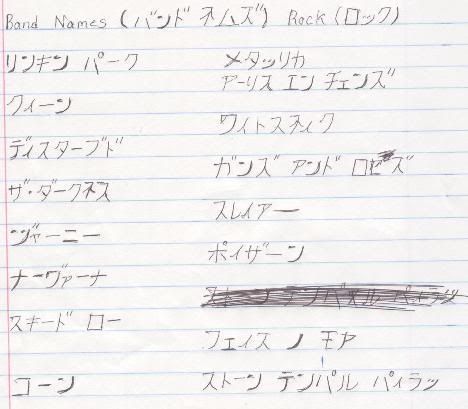 Band Names (バンド ネムズ) Rock (ロック)
リンキン パーク
クィーン
ディスターブド
ザ・ダークネス
ジャーニー
ナーヴァーナ
スキード ロー
コーン
メタッリカ
アーリス エン チェンズ
ワイトスネイク
ガンズ アンド ロゼズ
スレイアー
ポイザーン
フェイス ノ モヤ
ストーン テンパル パイラッ